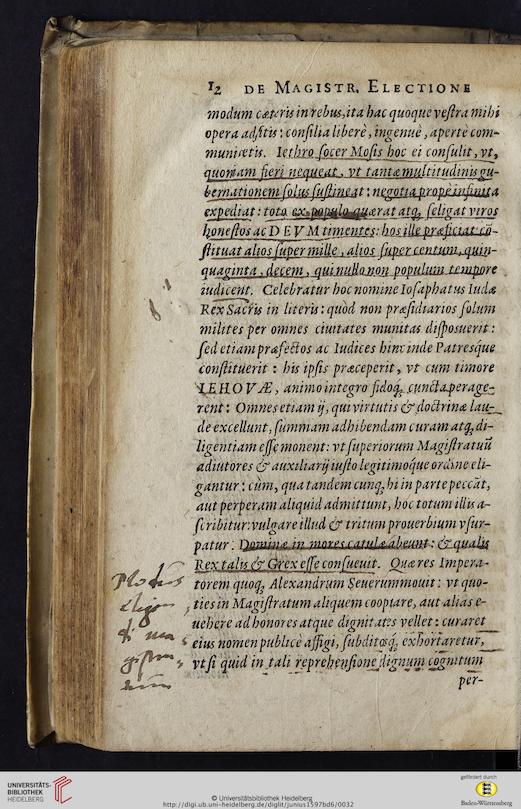 12 DE MAGISTR. ELECTIONE
modum cæteris in rebus, ita hac quoque vestra mihi
opera adsitis: consilia liberè, ingenuè, apertè com-
munietis. Iethro socer Mosis hoc ei consulit, vt,
quoniam fieri nequeat, vt tantæ multitudinis gu-
bernationem solus sustineat: negotia propè infinita
expediat: toto ex populo quærat atq; seligat viros
honestos ac DEVM timentes: hos ille præficiat cō-
stituat alios super mille, alios super centum, quin-
quaginta, decem, qui nullo non populum tempore
iudicent. Celebratur hoc nomine Iosaphatus Iudæ
Rex Sacris in literis: quòd non præsidiarios solum
milites per omnes ciuitates munitas disposuerit:
sed etiam præfectos ac Iudices hinc inde Patresque
constituerit: his ipsis præceperit, vt cum timore
IEHOVÆ, animo integro fidoq; cuncta perage-
rent: Omnes etiam ij, qui virtutis & doctrinæ lau-
de excellunt, summam adhibendam curam atq; di-
ligentiam esse monent: vt superiorum Magistratuū
adiutores & auxiliarij iusto legitimoque ordine eli-
gantur: cùm, qua tandem cunq; hi in parte peccāt,
aut perperam aliquid admittunt, hoc totum illis a-
scribitur: vulgare illud & tritum prouerbium vsur-
patur: Dominæ in mores catulæ abeunt: & qualis
Rex talis & Grex esse consueuit. Quæres Impera-
torem quoq; Alexandrum Seuerum mouit: vt quo-
ties in Magistratum aliquem cooptare, aut alias e-
uehere ad honores atque dignitates vellet: curaret
eius nomen publicè affigi, subditosq; exhortaretur,
vt si quid in tali reprehensione dignum cognitum
per-
UNIVERSITÄTS-
BIBLIOTHEK
HEIDELBERG
© Universitätsbibliothek Heidelberg
http://digi.ub.uni-heidelberg.de/diglit/junius1597bd6/0032
gefördert durch
Baden-Württemberg